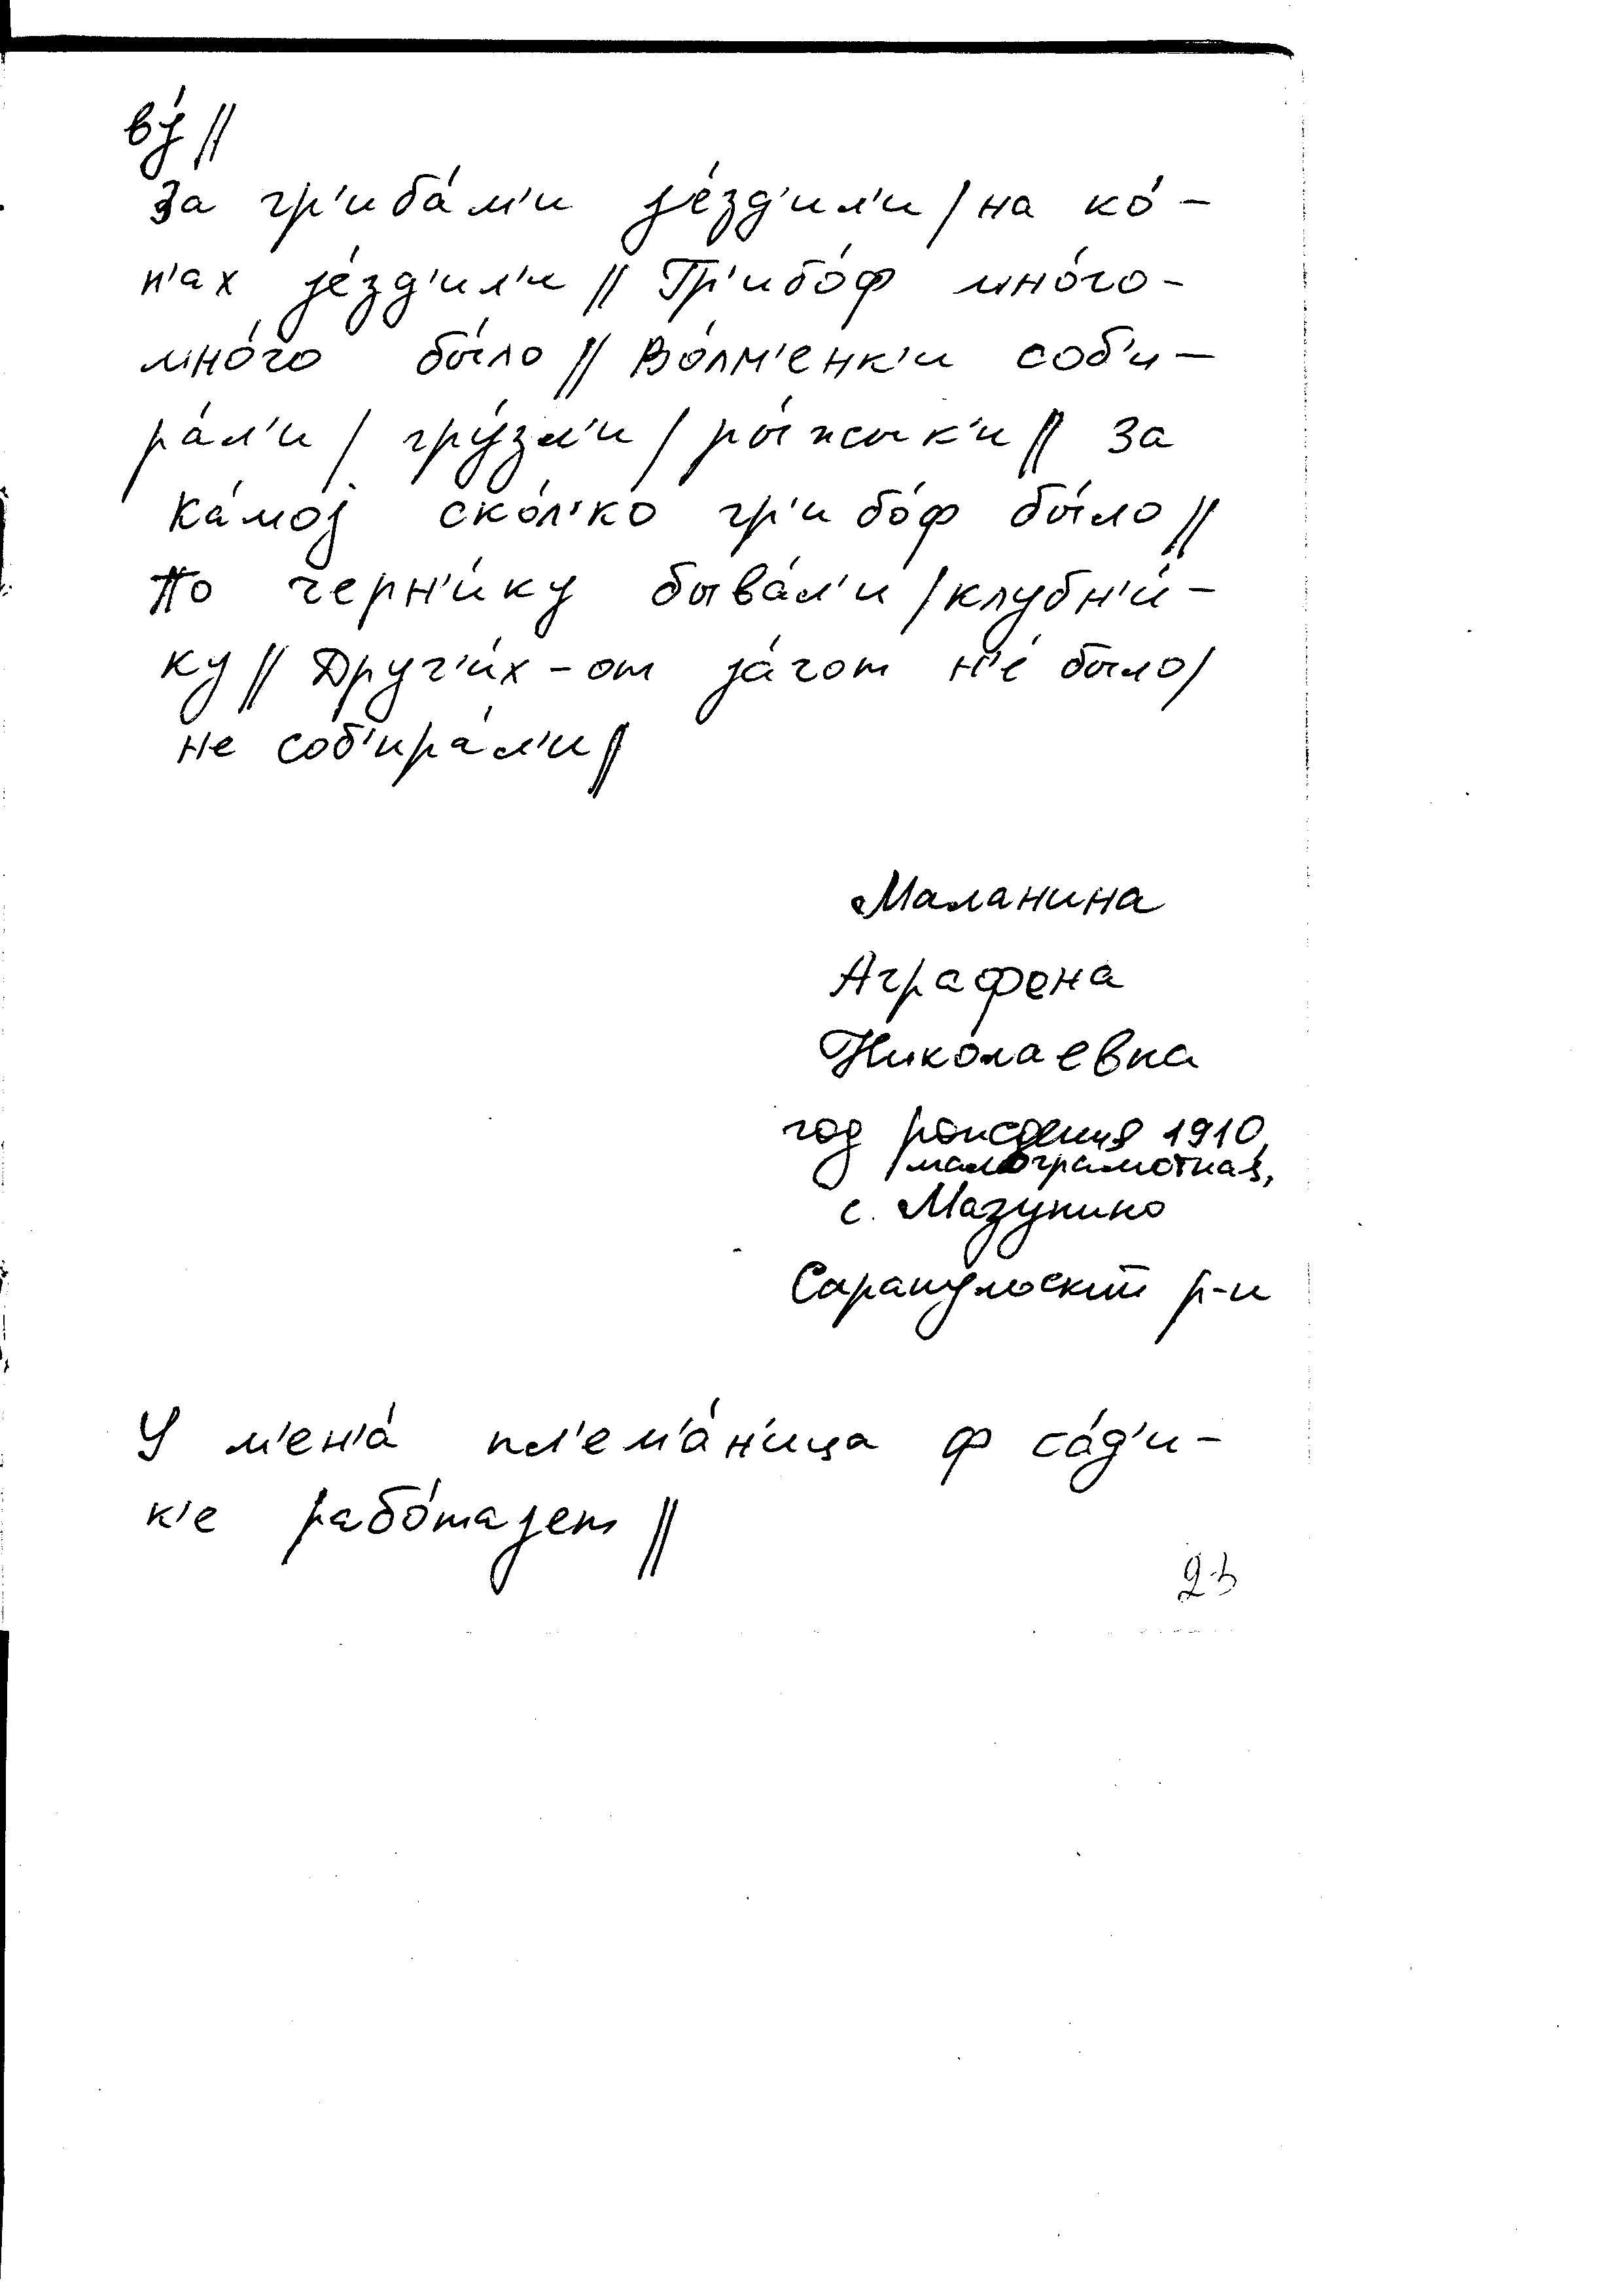 ву́ //
За гр'иба́м'и је́зд'ил'и / на ко́-
н'ах је́зд'ил'и // Гр'ибо́ф мно́го-
мно́го бы́ло // Во́лм'енк'и соб'и-
ра́л'и / гру́зл'и / ры́жык'и // За
Ка́мој ско́л'ко гр'ибо́ф бы́ло //
По черн'и́ку быва́л'и / клубн'и́-
ку // Друг'и́х-от јáгот н'é было /
не соб'ира́л'и //
Маланина
Аграфена
Николаевна
год рождения 1910,
малограмотная,
с. Мазунино
Сарапульский р-н
У м'ен'а́ пл'ем'а́н'ица ф са́д'и-
к'е рабо́тајет //
23